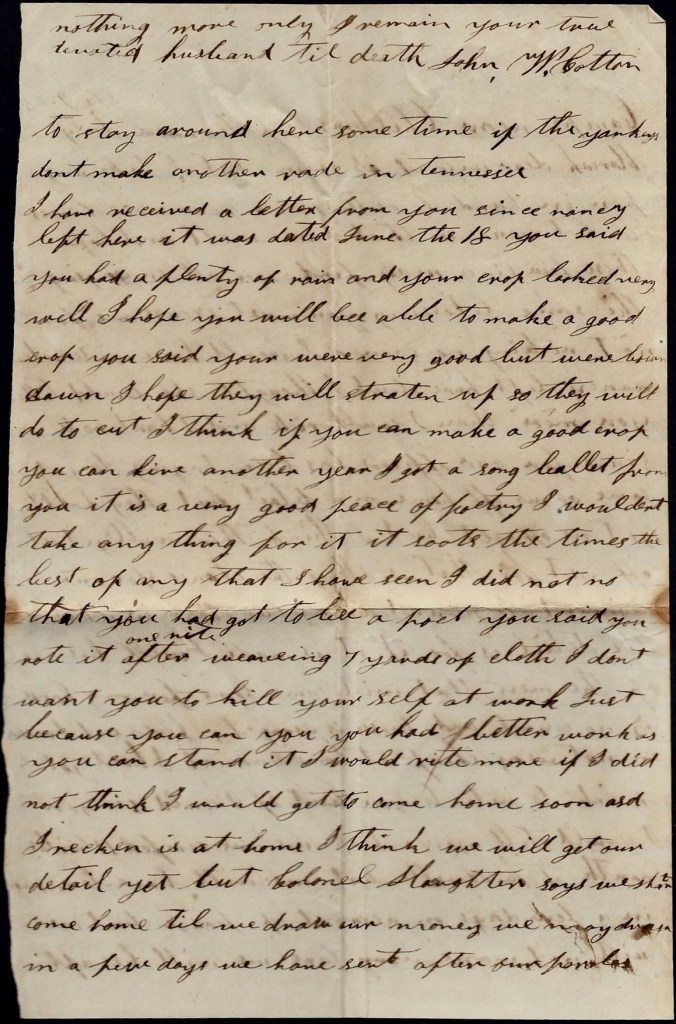 nothing more only I remain your true
devoted husband til death John W. Cotton
to stay around here some time if the yankeys
dont make another rade in tennessee
I have received a letter from you since nancy
left here it was dated June the 18 you said
you had a plenty of rain and your crop looked very
well I hope you will bee able to make a good
crop you said your were very good but were blown
down I hope they will straten up so they will
do to cut I think if you can make a good crop
you can live another year I got a song ballet from
you it is a very good peace of poetry I wouldent
take any thing for it it soots the times the
best of any that I have seen I did not no
that you had got to bee a poet you said you
rote it one nite after weaveing 7 yards of cloth I dont
want you to kill your self at work Just
because you can you you had better work as
you can stand it I would rite more if I did
not think I would get to come home soon asd
I recken is at home I think we will get our
detail yet but Colonel Slaughter says we shant
come home til we draw our money we may draw
in a few days we have sent after our paroles